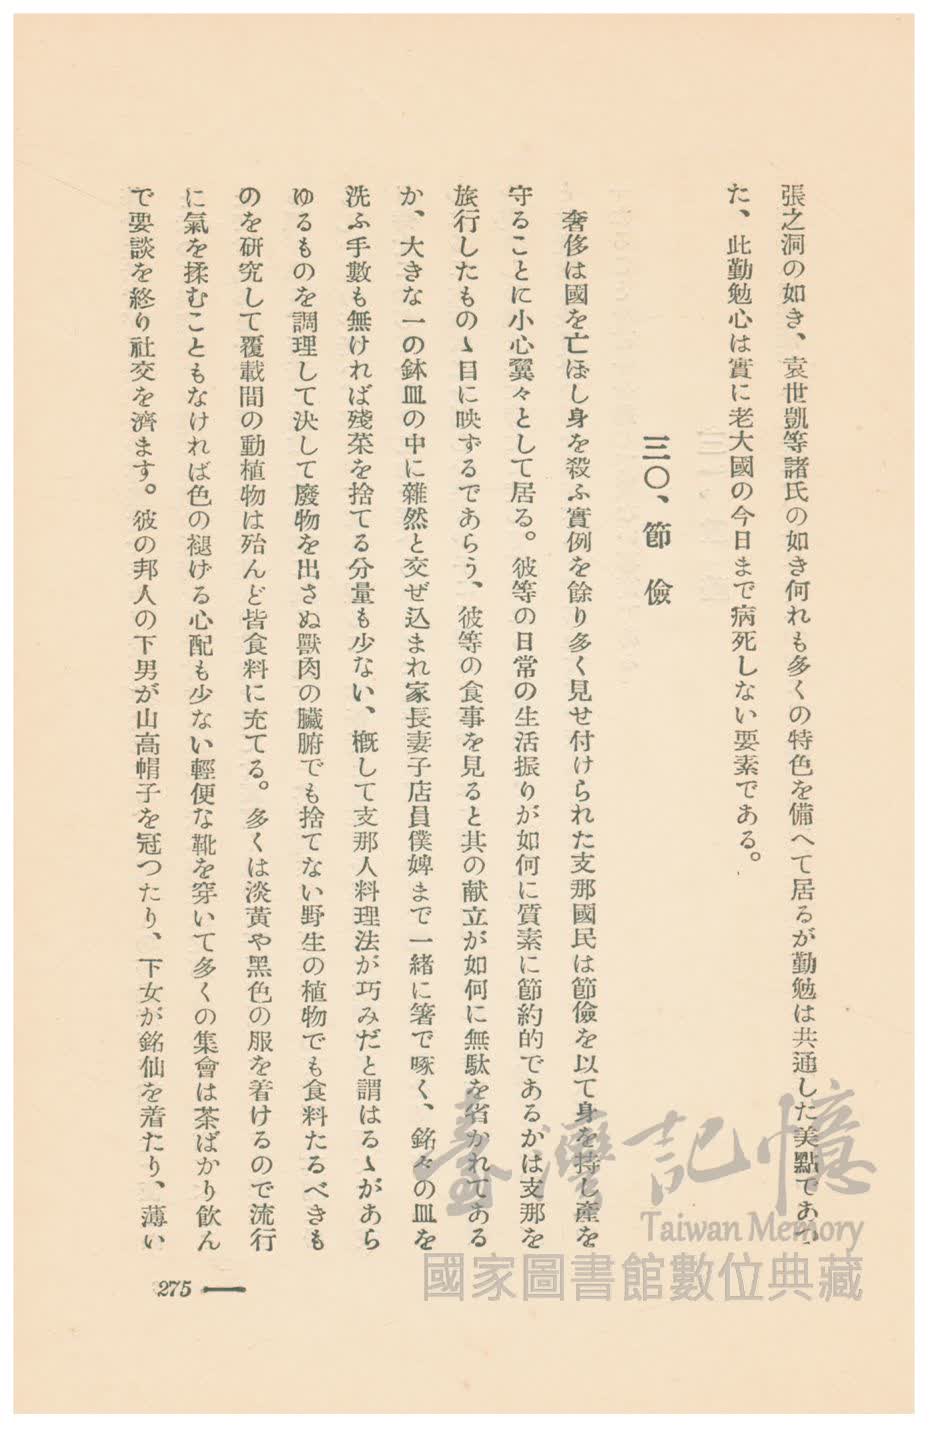 張之洞の如き、袁世凱等諸氏の如き何れも多くの特色を備へて居るが勤勉は共通した美點であつ
た、此勤勉心は實に老大國の今日まで病死しない要素である。
三〇、節儉
奢侈は國を亡ぼし身を殺ふ實例を餘り多く見せ付けられた支那國民は節儉を以て身を持し產を
守ることに小心翼々として居る。彼等の日常の生活振りが如何に質素に節約的であるかは支那を
旅行したものゝ目に映ずるであらう、彼等の食事を見ると其の献立が如何に無駄を省かれてある
か、大きな一の鉢皿の中に雜然と交ぜ込まれ家長妻子店員僕婢まで一緒に箸で啄く、銘々の皿を
洗ふ手數も無ければ殘菜を捨てる分量も少ない、槪して支那人料理法が巧みだと謂はるゝがあら
ゆるものを調理して決して廢物を出さぬ獸肉の臟腑でも捨てない野生の植物でも食料たるべきも
のを硏究して覆載間の動植物は殆んど皆食料に充てる。多くは淡黃や黑色の服を着けるので流行
に氣を揉むこともなければ色の褪げる心配も少ない輕便な靴を穿いて多くの集會は茶ばかり飮ん
で要談を終り社交を濟ます。彼の邦人の下男が山高帽子を冠つたり、下女が銘仙を着たり、薄い
275
臺灣記憶
Taiwan Memory
國家圖書館數位典藏